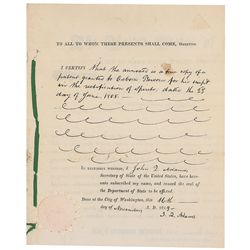 TO ALL TO WHOM THESE PRESENTS SHALL COME, GREETING
I CERTIFY That the annexed is a true copy of a
patent granted to for his improvt
in the rectification of Spirits, dated the
day of June 1808.
IN TESTIMONY WHEREOF, I John Q. Adams,
Secretary of State of the United States, have here-
unto subscribed my name, and caused the seal of
the Department of State to be affixed.
Done at the City of Washington, this
day of November A. D.
J. Q. Adams